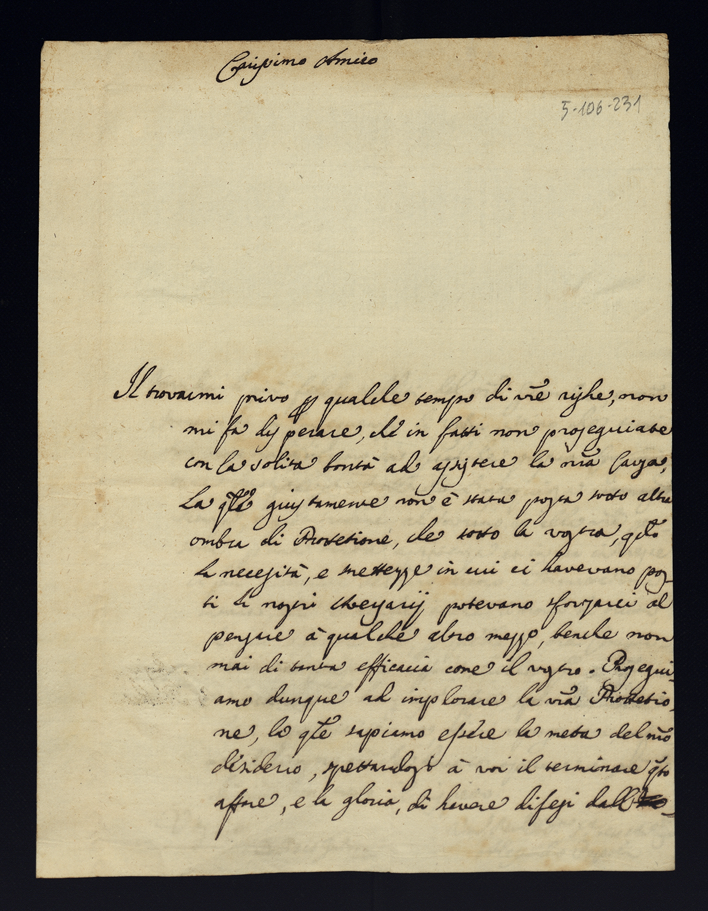 Carissimo Amico
5-106-231
Il trovarmi privo p qualche tempo di vre righe, non
mi fa disperare, che in fatti non proseguiate
con la solita bontà ad assistere la nra causa,
la qle giustamente non è stata posta sotto altra
ombra di Protetione, che sotto la vostra, qdo
la necessità, e strettezze in cui ci havevano pos
ti li nostri Aversarij potevano sforzarci al
pensare à qualche altro mezzo, benche non
mai di tanta efficacia come il vostro. Prosegui
amo dunque ad implorare la vra Protetio
ne, la qle sapiamo essere la meta del nro
desiderio, spettandosi à voi il terminare qto
affare, e la gloria, di havere difesi dall